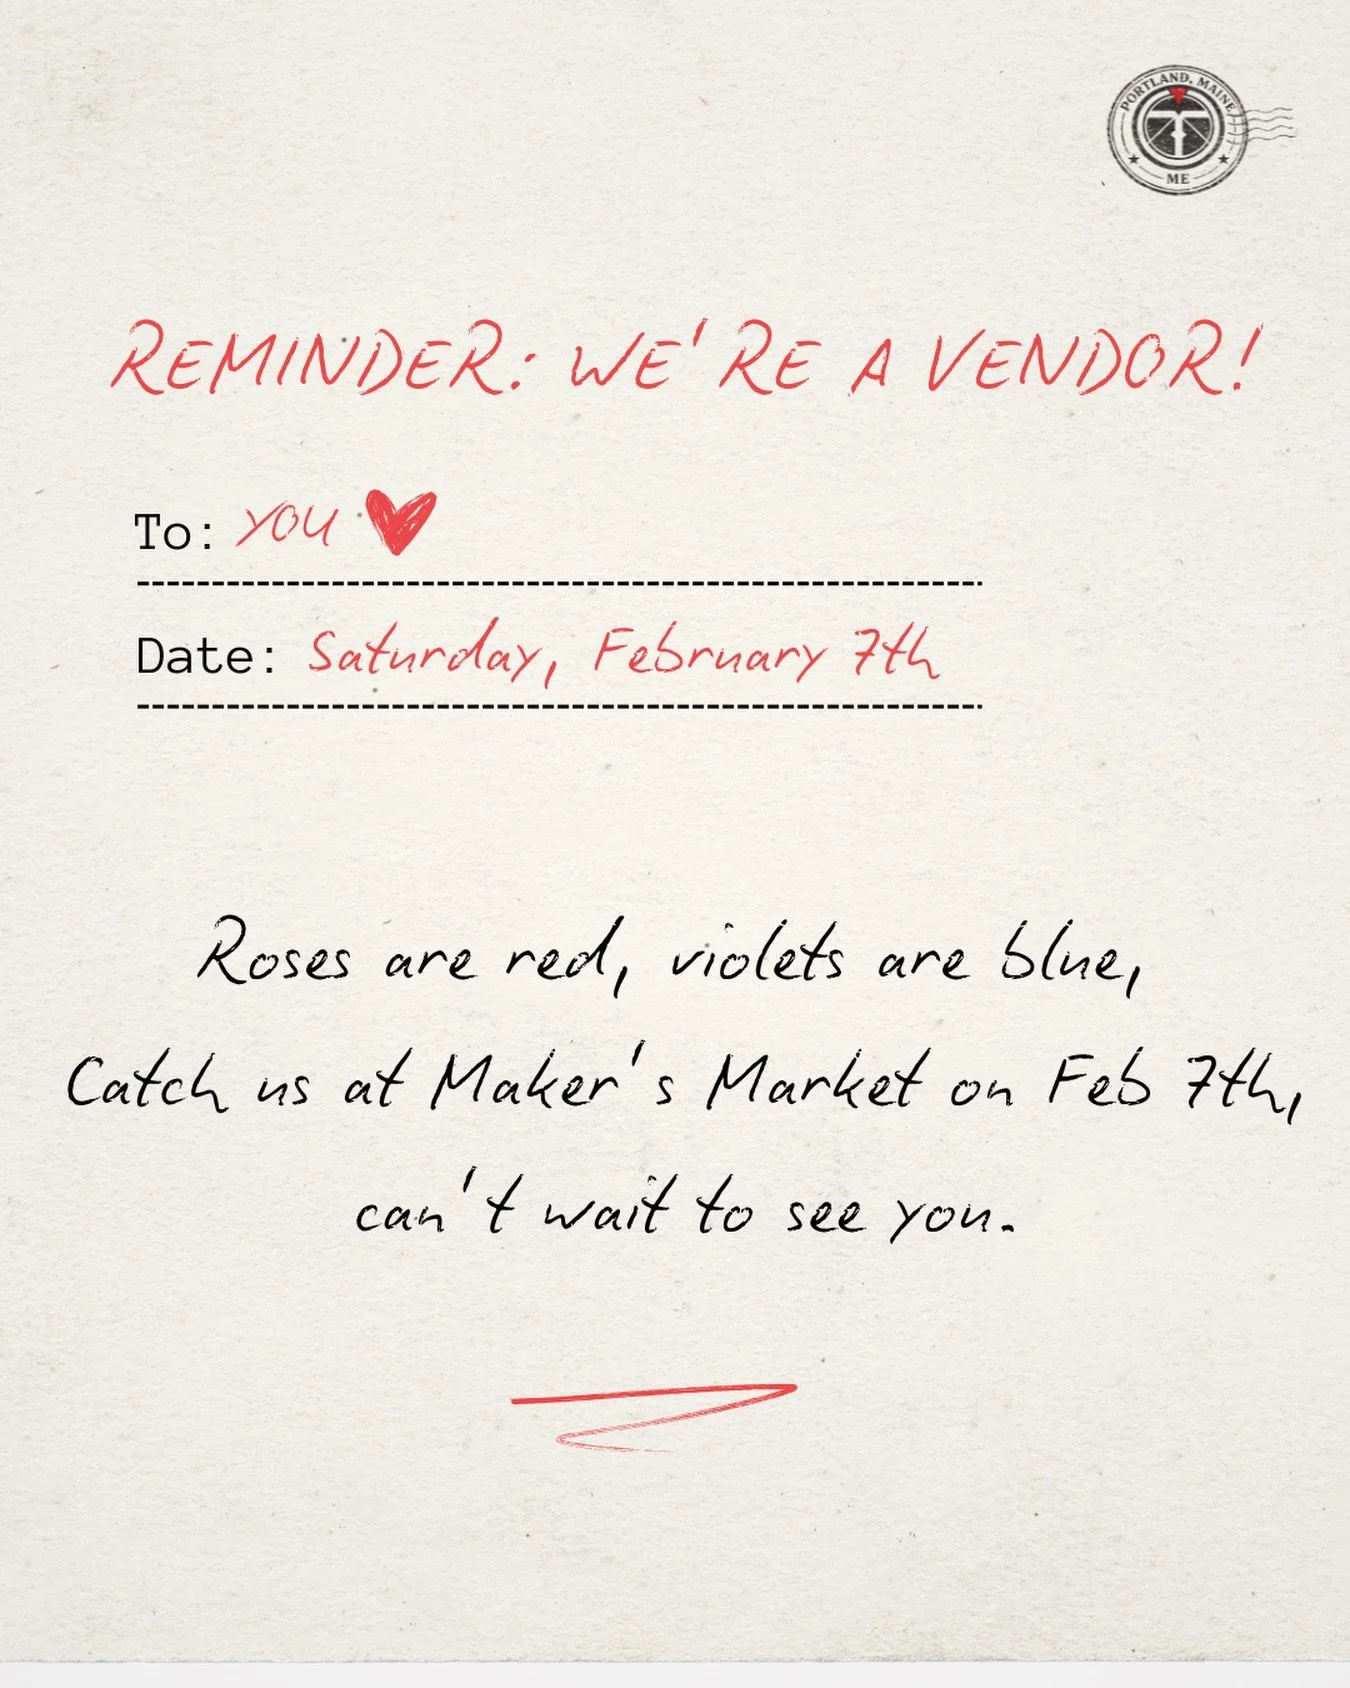 PORTLAND, MAINE
ME
REMINDER: WE'RE A VENDOR!
To: YOU
Date: Saturday, February 7th
Roses are red, violets are blue,
Catch us at Maker's Market on Feb 7th,
can't wait to see you.